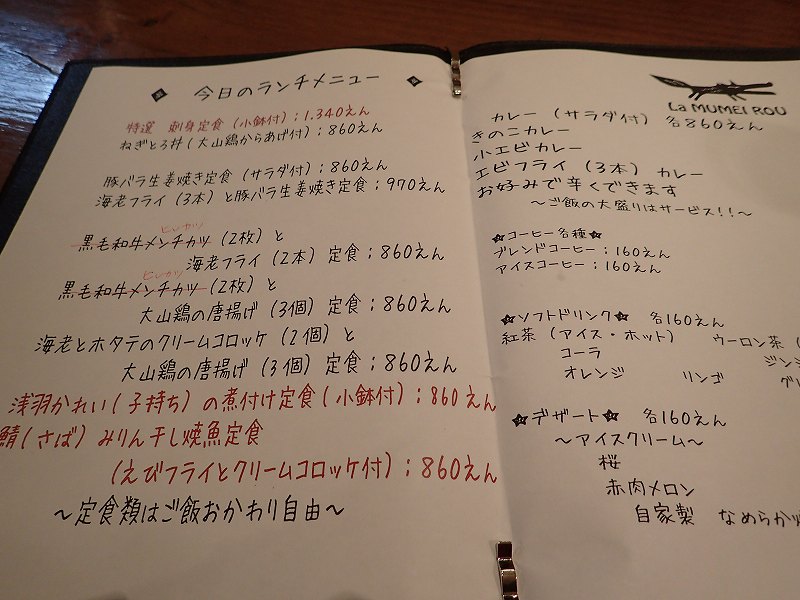 今日のランチメニュー
特選 刺身定食(小鉢付);1.340えん
ねぎとろ丼(大山鶏からあげ付);860えん
豚バラ生姜焼き定食(サラダ付);860えん
海老フライ(3本)と豚バラ生姜焼き定食;970えん
ヒレカツ
黒毛和牛メンチカツ(2枚)と
海老フライ(2本)定食;860えん
ヒレカツ
黒毛和牛メンチカツ(2枚)と
大山鶏の唐揚げ(3個)定食;860えん
海老とホタテのクリームコロッケ(2個)と
大山鶏の唐揚げ(3個)定食;860えん
浅羽かれい(子持ち)の煮付け定食(小鉢付);860えん
鯖(さば)みりん干し焼魚定食
(えびフライとクリームコロッケ付);860えん
~定食類はご飯おかわり自由~
La MUMEI ROU
カレー(サラダ付)各860えん
きのこカレー
小エビカレー
エビフライ(3本)カレー
お好みで辛くできます
~ご飯の大盛りはサービス!!~
☆コーヒー各種☆
ブレンドコーヒー;160えん
アイスコーヒー;160えん
☆ソフトドリンク☆ 各160えん
紅茶(アイス・ホット) ウーロン茶(
コーラ ジン
オレンジ リンゴ グ
☆デザート☆ 各160えん
~アイスクリーム~
桜
赤肉メロン
自家製 なめらか